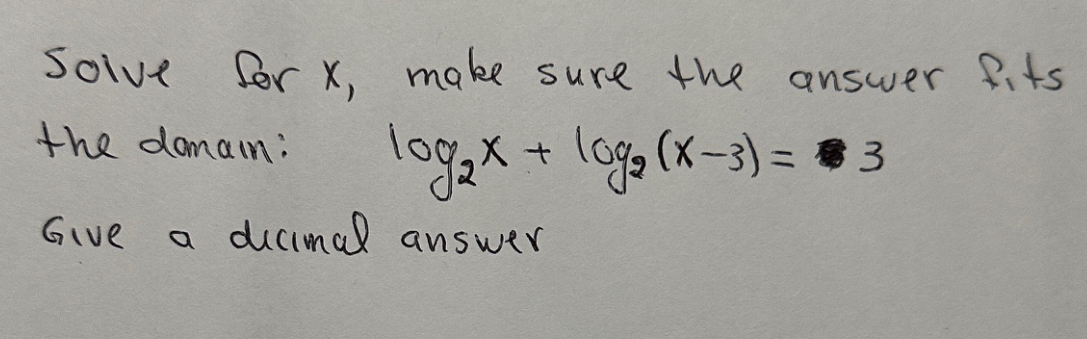 Solve for x, make sure the answer fits
the domain: log₂x + log₂(x-3) = 3
Give a decimal answer